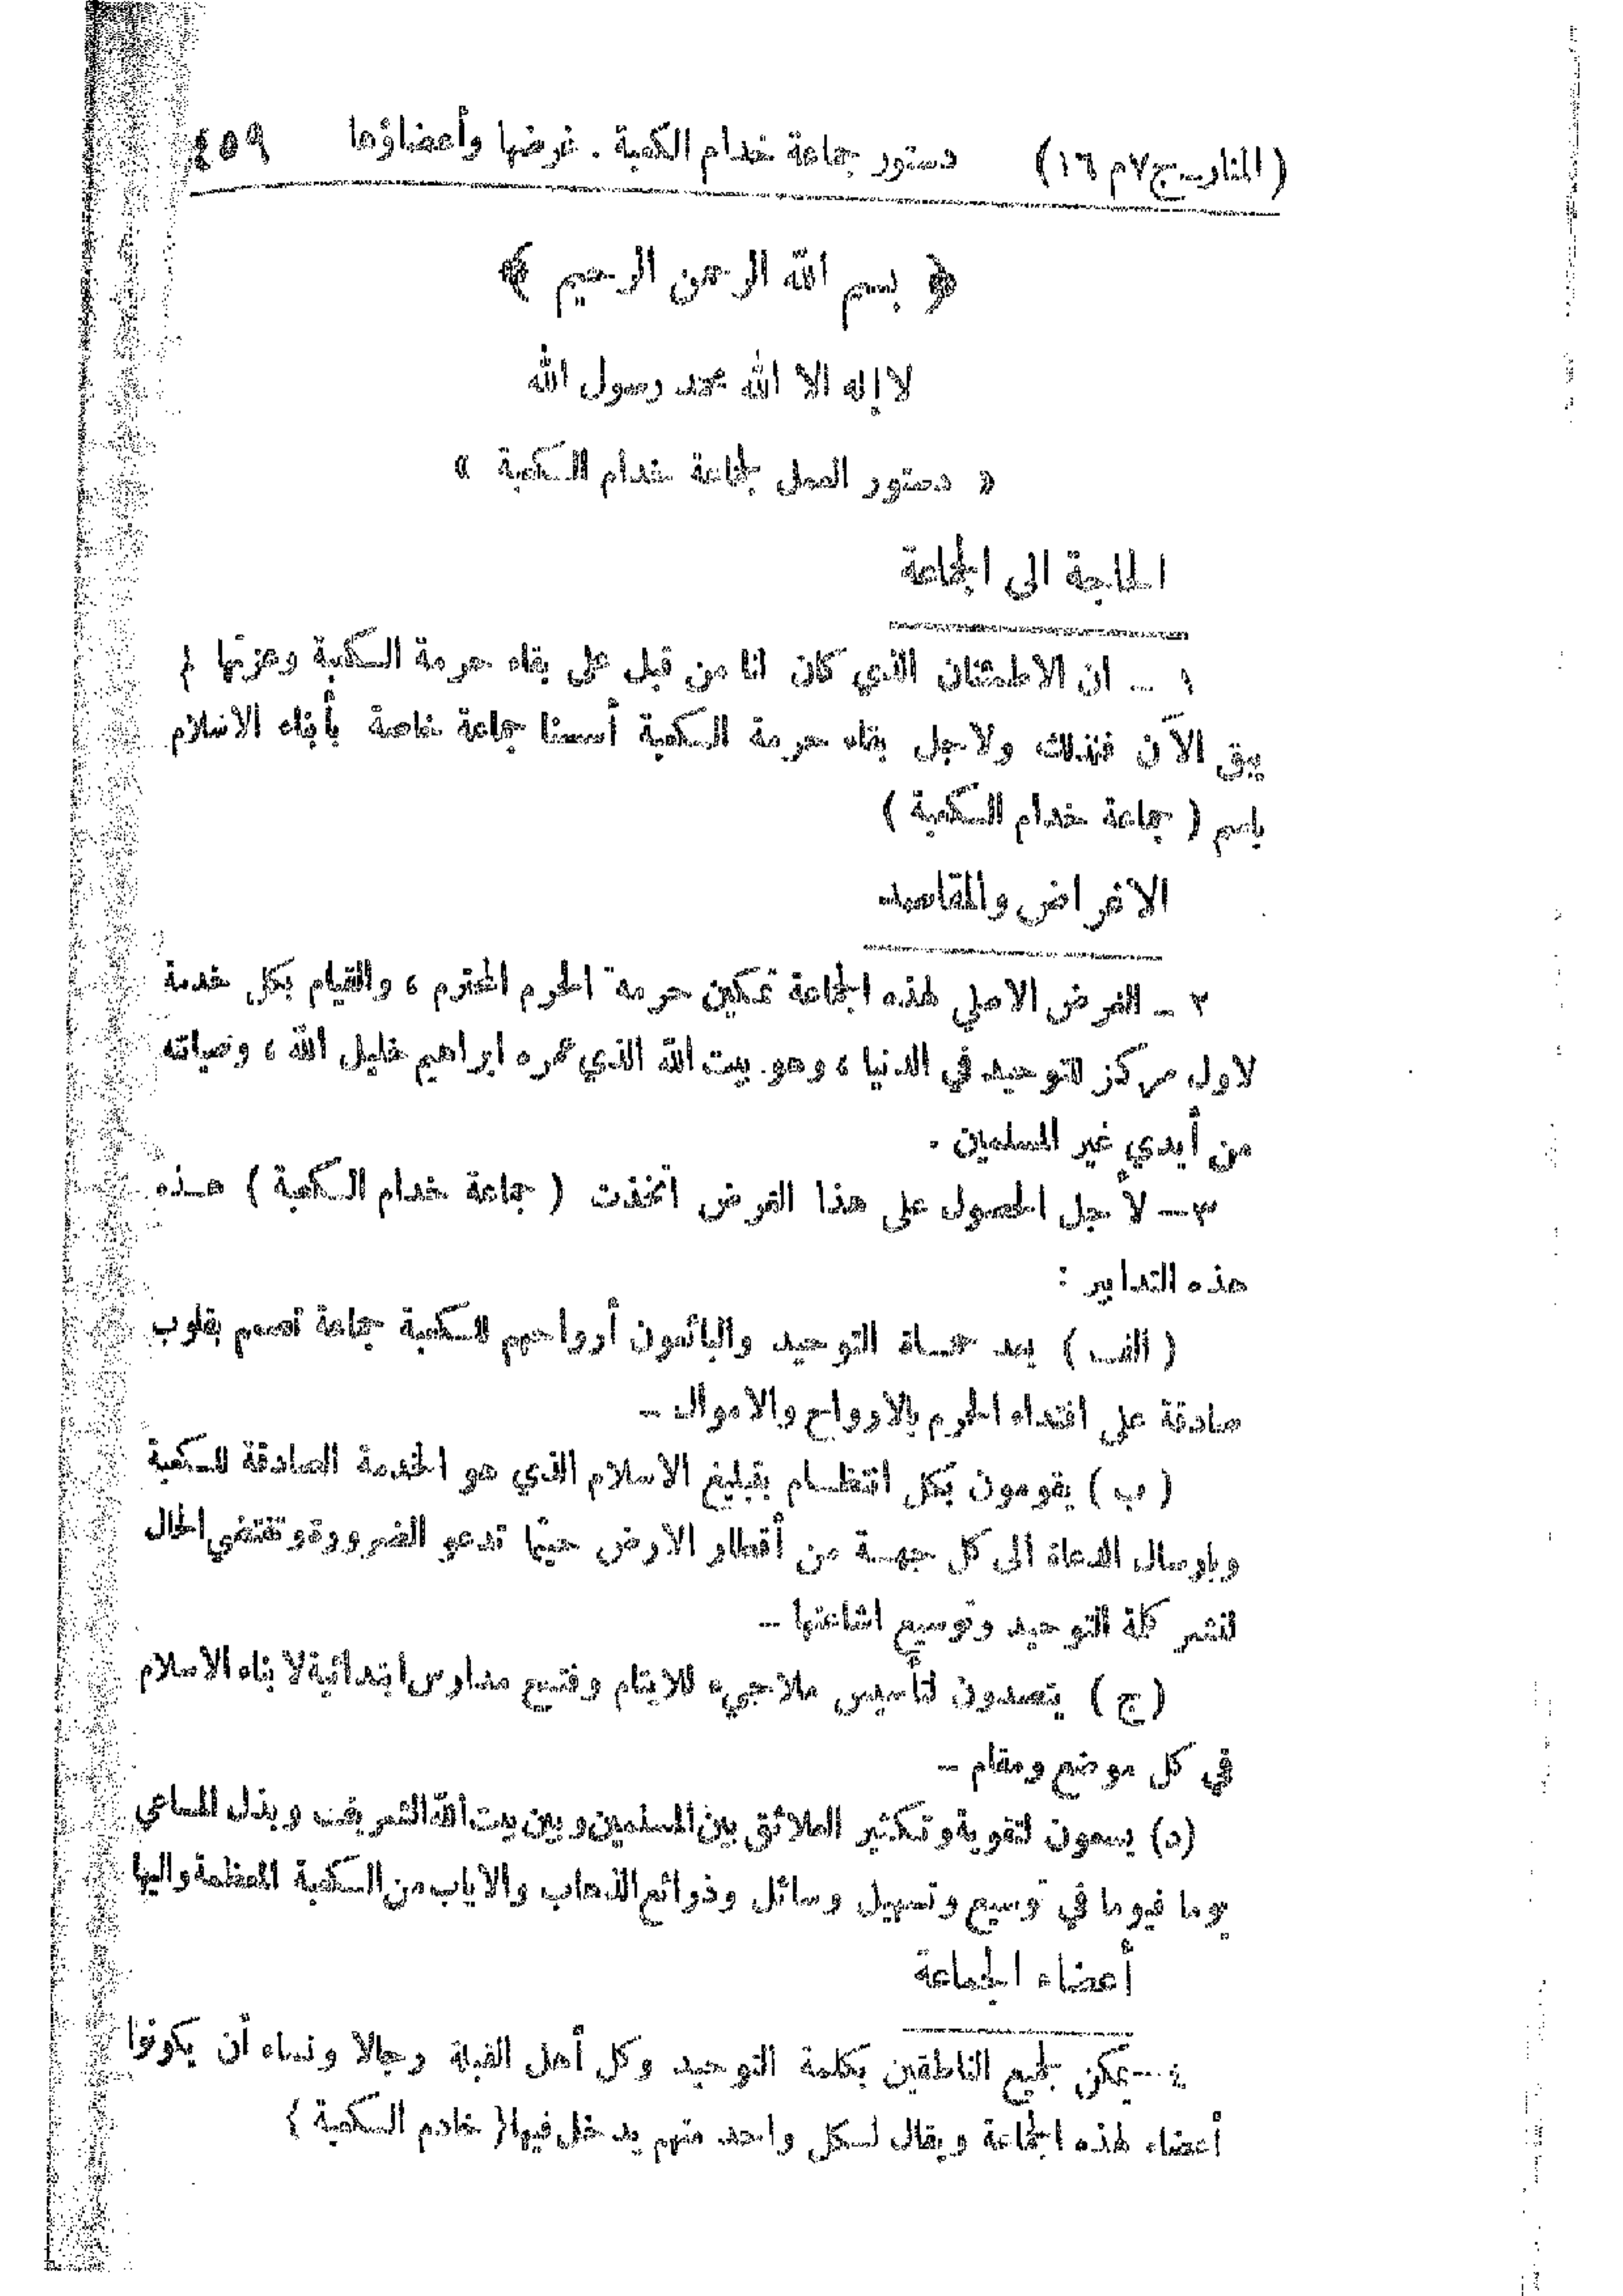 (المنار ـ ج ٧ م ١٦) دستور جماعة خدام الكعبة . غرضها وأعضاؤها ٤٥٩
﴿ بسم الله الرحمن الرحيم ﴾
لا إله الا الله محمد رسول الله
« دستور العمل لجماعة خدام الكعبة »
الحاجة الى الجماعة
١ ــ ان الاطمئنان الذي كان لنا من قبل على بقاء حرمة الكعبة وعزتها لم
يبق الآن فلذلك ولاجل بقاء حرمة الكعبة أسسنا جماعة خاصة بأبناء الاسلام
باسم ( جماعة خدام الكعبة )
الاغراض والمقاصد
٢ ــ الغرض الاصلي لهذه الجماعة تمكين حرمة الحرم المحترم ، والقيام بكل خدمة
لاول مركز للتوحيد في الدنيا ، وهو بيت الله الذي عمره ابراهيم خليل الله ، وصيانته
من أيدي غير المسلمين .
٣ ــ لأجل الحصول على هذا الغرض اتخذت ( جماعة خدام الكعبة ) هـذه
هذه التدابير :
( الف ) يعد حمـاة التوحيد والبائعون أرواحهم للكعبة جماعة تصمم بقلوب
صادقة على افتداء الحرم بالارواح والاموال ــ
( ب ) يقومون بكل انتظـام بتبليغ الاسلام الذي هو الخدمة الصادقة للكعبة
وبارسال الدعاة الى كل جهـة من أقطار الارض حيثما تدعو الضرورة وتقتضي الحال
لنشر كلمة التوحيد وتوسيع اشاعتها ــ
( ج ) يتصدون لتأسيس ملاجيء للايتام وفتح مدارس ابتدائية لابناء الاسلام
في كل موضع ومقام ــ
(د) يسعون لتقوية وتكثير العلائق بين المسلمين وبين بيت الله الشريف وبذل المساعي
يوما فيوما في توسيع وتسهيل وسائل وذرائع الذهاب والاياب من الكعبة المعظمة واليها
أعضاء الجماعة
٤ ــ يمكن لجميع الناطقين بكلمة التوحيد وكل أهل القبلة رجالا ونساء أن يكونوا
أعضاء لهذه الجماعة ويقال لكل واحد منهم يدخل فيها ( خادم الكعبة )